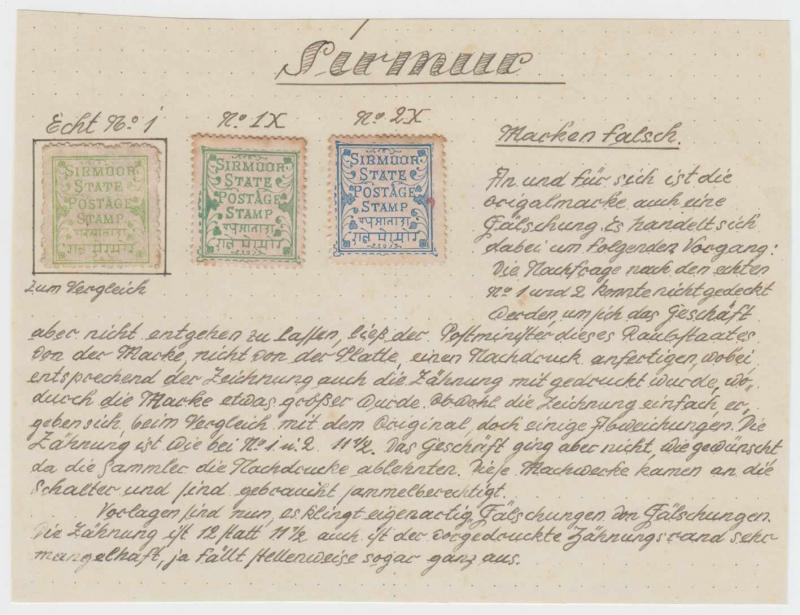 Sirmoor
Echt No. 1
No. 1X
No. 2X
Marken falsch.
SIRMOOR
STATE
POSTAGE
STAMP
SIRMOOR
STATE
POSTAGE
STAMP
SIRMOOR
STATE
POSTAGE
STAMP
zum Vergleich
An und für sich ist die
origalmarke auch eine
Fälschung. Es handelt sich
dabei um folgenden Vorgang:
Die Nachfrage nach den echten
No 1 und 2 konnte nicht gedeckt
werden, um sich das Geschäft
aber nicht entgehen zu lassen, ließ der Postminister dieses Raubstaates
von der Marke, nicht von der Platte, einen Nachdruck anfertigen, wobei
entsprechend der Zeichnung auch die Zähnung mit gedruckt wurde, wo,
durch die Marke etwas größer wurde. Obwohl die Zeichnung einfach, er,
geben sich, beim Vergleich mit dem Original, doch einige Abweichungen. Die
Zähnung ist wie bei No 1 u. 2 11½. Das Geschäft ging aber nicht, wie gewünscht
da die Sammler die Nachdrucke ablehnten. Diese Machwerke kamen an die
Schalter und sind gebraucht sammelberechtigt.
Vorlagen sind nun, es klingt eigenartig, Fälschungen von Fälschungen.
Die Zähnung ist 12 statt 11½ auch ist der vorgedruckte Zähnungsrand sehr
mangelhaft, ja fällt stellenweise sogar ganz aus.